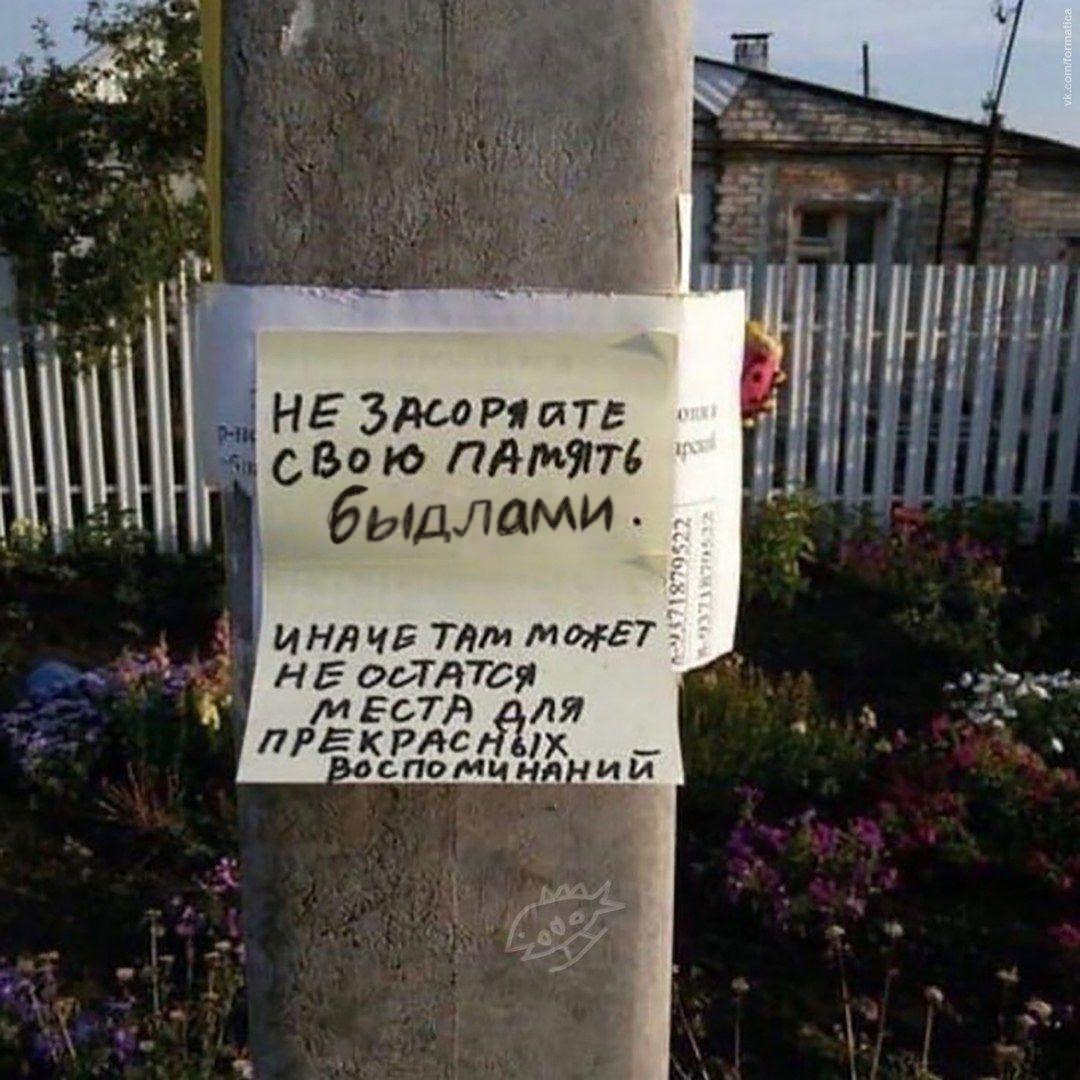 vk.com/formatica
НЕ ЗАСОРЯЙТЕ
СВОЮ ПАМЯТЬ
быдлами.
ИНАЧЕ ТАМ МОЖЕТ
НЕ ОСТАТСЯ
МЕСТА ДЛЯ
ПРЕКРАСНЫХ
ВОСПОМИНАНИЙ
8-9371879522
8-9371879522